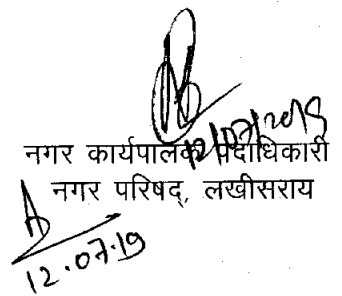 12/07/2019
नगर कार्यपालक पदाधिकारी
नगर परिषद्, लखीसराय
12.07.19